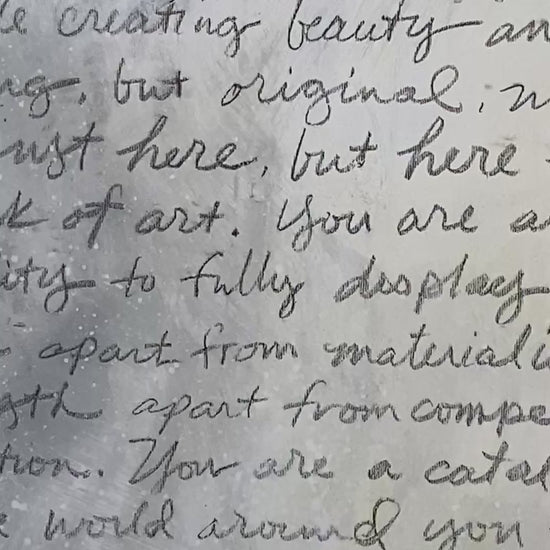 le creating beauty an
ng, but original, n
ust here, but here
k of art. You are a
ity to fully display
apart from materiali
gth apart from compe
tion. You are a catal
e world around you